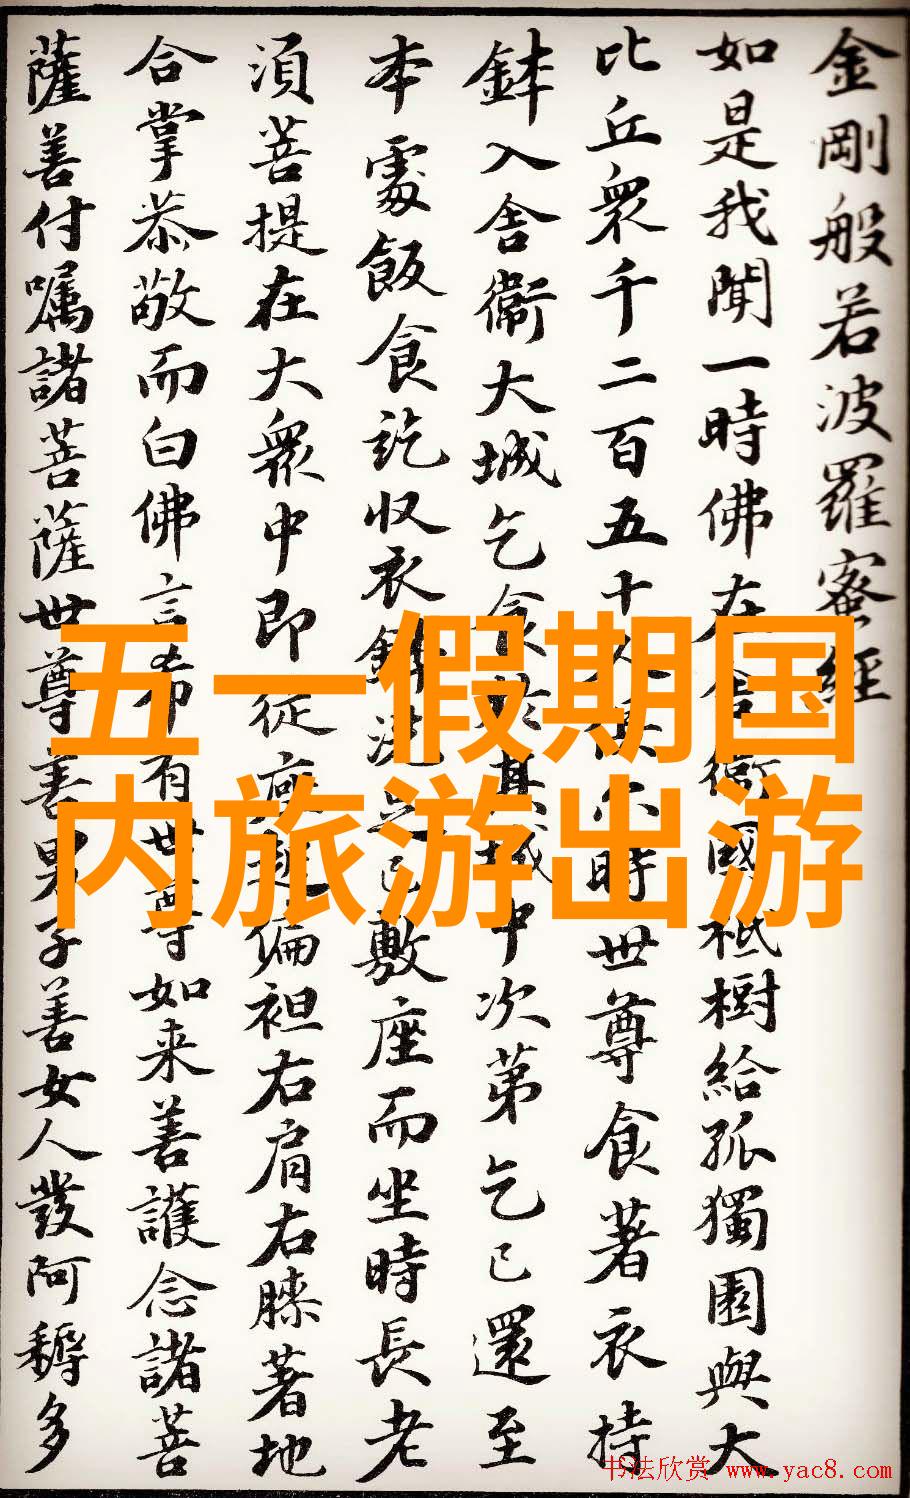 金剛般若波羅蜜經
如是我聞一時佛在舍衛國祇樹給孤獨園與大
比丘衆千二百五十人俱尒時世尊食著衣持
鉢入舍衛大城乞食於其城中次第乞已還至
本處飯食訖收衣鉢洗足已敷座而坐時長老
須菩提在大衆中即從座起偏袒右肩右膝著地
合掌恭敬而白佛言希有世尊如来善護念諸菩
薩善付囑諸菩薩世尊善男子善女人發阿耨多
五一假期国
内旅游出游
书法欣赏 www.yac8.com